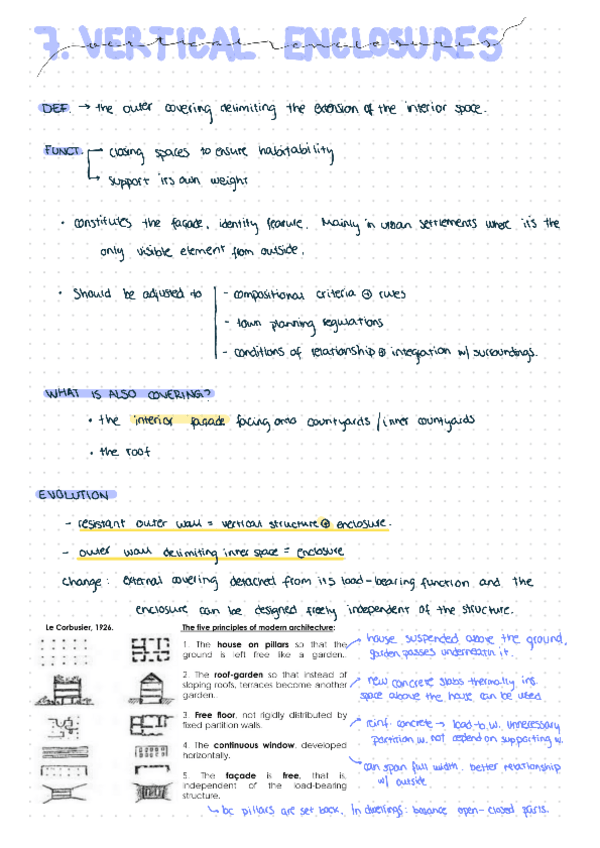 7. VERTICAL ENCLOSURES
vertical enclosures
DEF. → the outer covering delimiting the extension of the interior space.
FUNCT. → closing spaces to ensure habitability
→ support its own weight
• constitutes the façade, identity feature. Mainly in urban settlements where it's the
only visible element from outside.
• Should be adjusted to - compositional criteria ⊕ rules
- town planning regulations
- conditions of relationship ⊕ integration w/ surroundings.
WHAT IS ALSO COVERING?
• the interior façade facing onto courtyards / inner courtyards
• the roof
EVOLUTION
- resistant outer wall = vertical structure ⊕ enclosure.
- outer wall delimiting inner space = enclosure
change: external covering detached from its load-bearing function and the
enclosure can be designed freely independent of the structure.
Le Corbusier, 1926. The five principles of modern architecture:
1. The house on pillars so that the
ground is left free like a garden.
house suspended above the ground,
garden passes underneath it.
2. The roof-garden so that instead of
sloping roofs, terraces become another
garden.
new concrete slabs thermally ins.
space above the house can be used
3. Free floor, not rigidly distributed by
fixed partition walls.
reinf. concrete → load-b.w. unnecessary
partition w. not depend on supporting w.
4. The continuous window, developed
horizontally.
can span full width. better relationship
w/ outside
5. The façade is free, that is,
independent of the load-bearing
structure.
bc pillars are set back. In dwellings: balance open-closed parts.